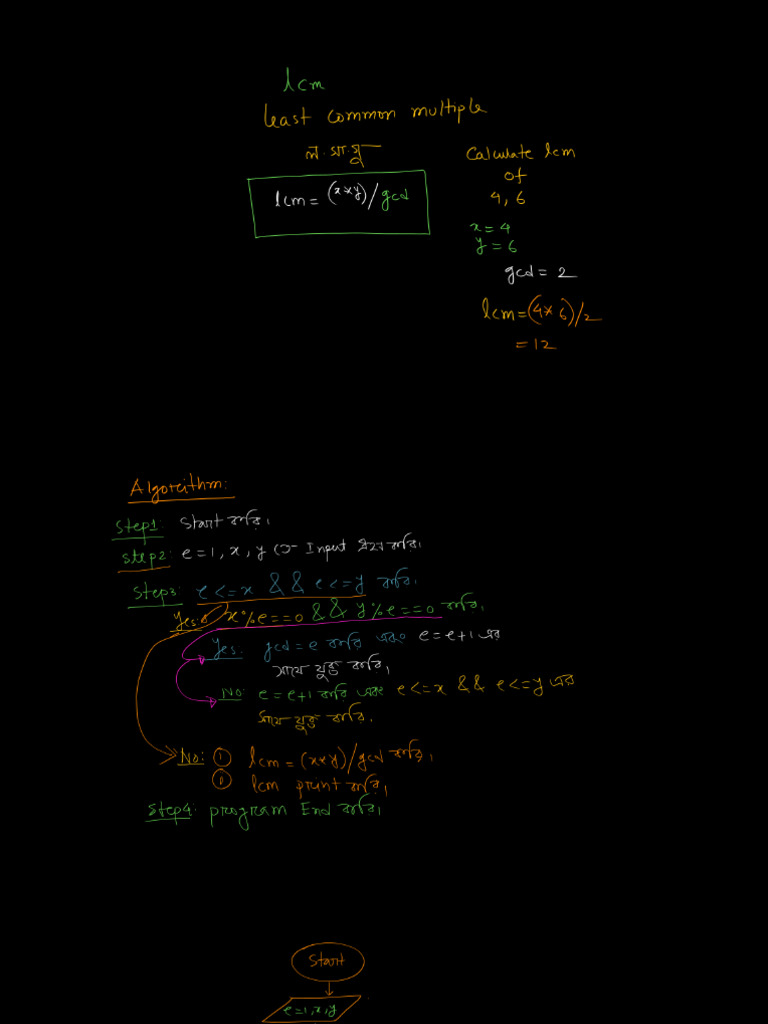 lcm
least common multiple
ল.সা.গু
lcm = (x*y)/gcd
Calculate lcm
of
4, 6
x = 4
y = 6
gcd = 2
lcm = (4*6)/2
= 12
Algorithm:
Step1: Start করি।
Step2: e = 1, x, y কে Input গ্রহণ করি।
Step3: e <= x && e <= y করি।
Yes: x%e==0 && y%e==0 করি।
Yes: gcd = e করি এবং e = e+1 এর
সাথে যুক্ত করি।
No: e = e+1 করি এবং e <= x && e <= y এর
সাথে যুক্ত করি.
No: ① lcm = (x*y)/gcd করি।
lcm print করি।
Step4: program End করি।
Start
e=1,x,y